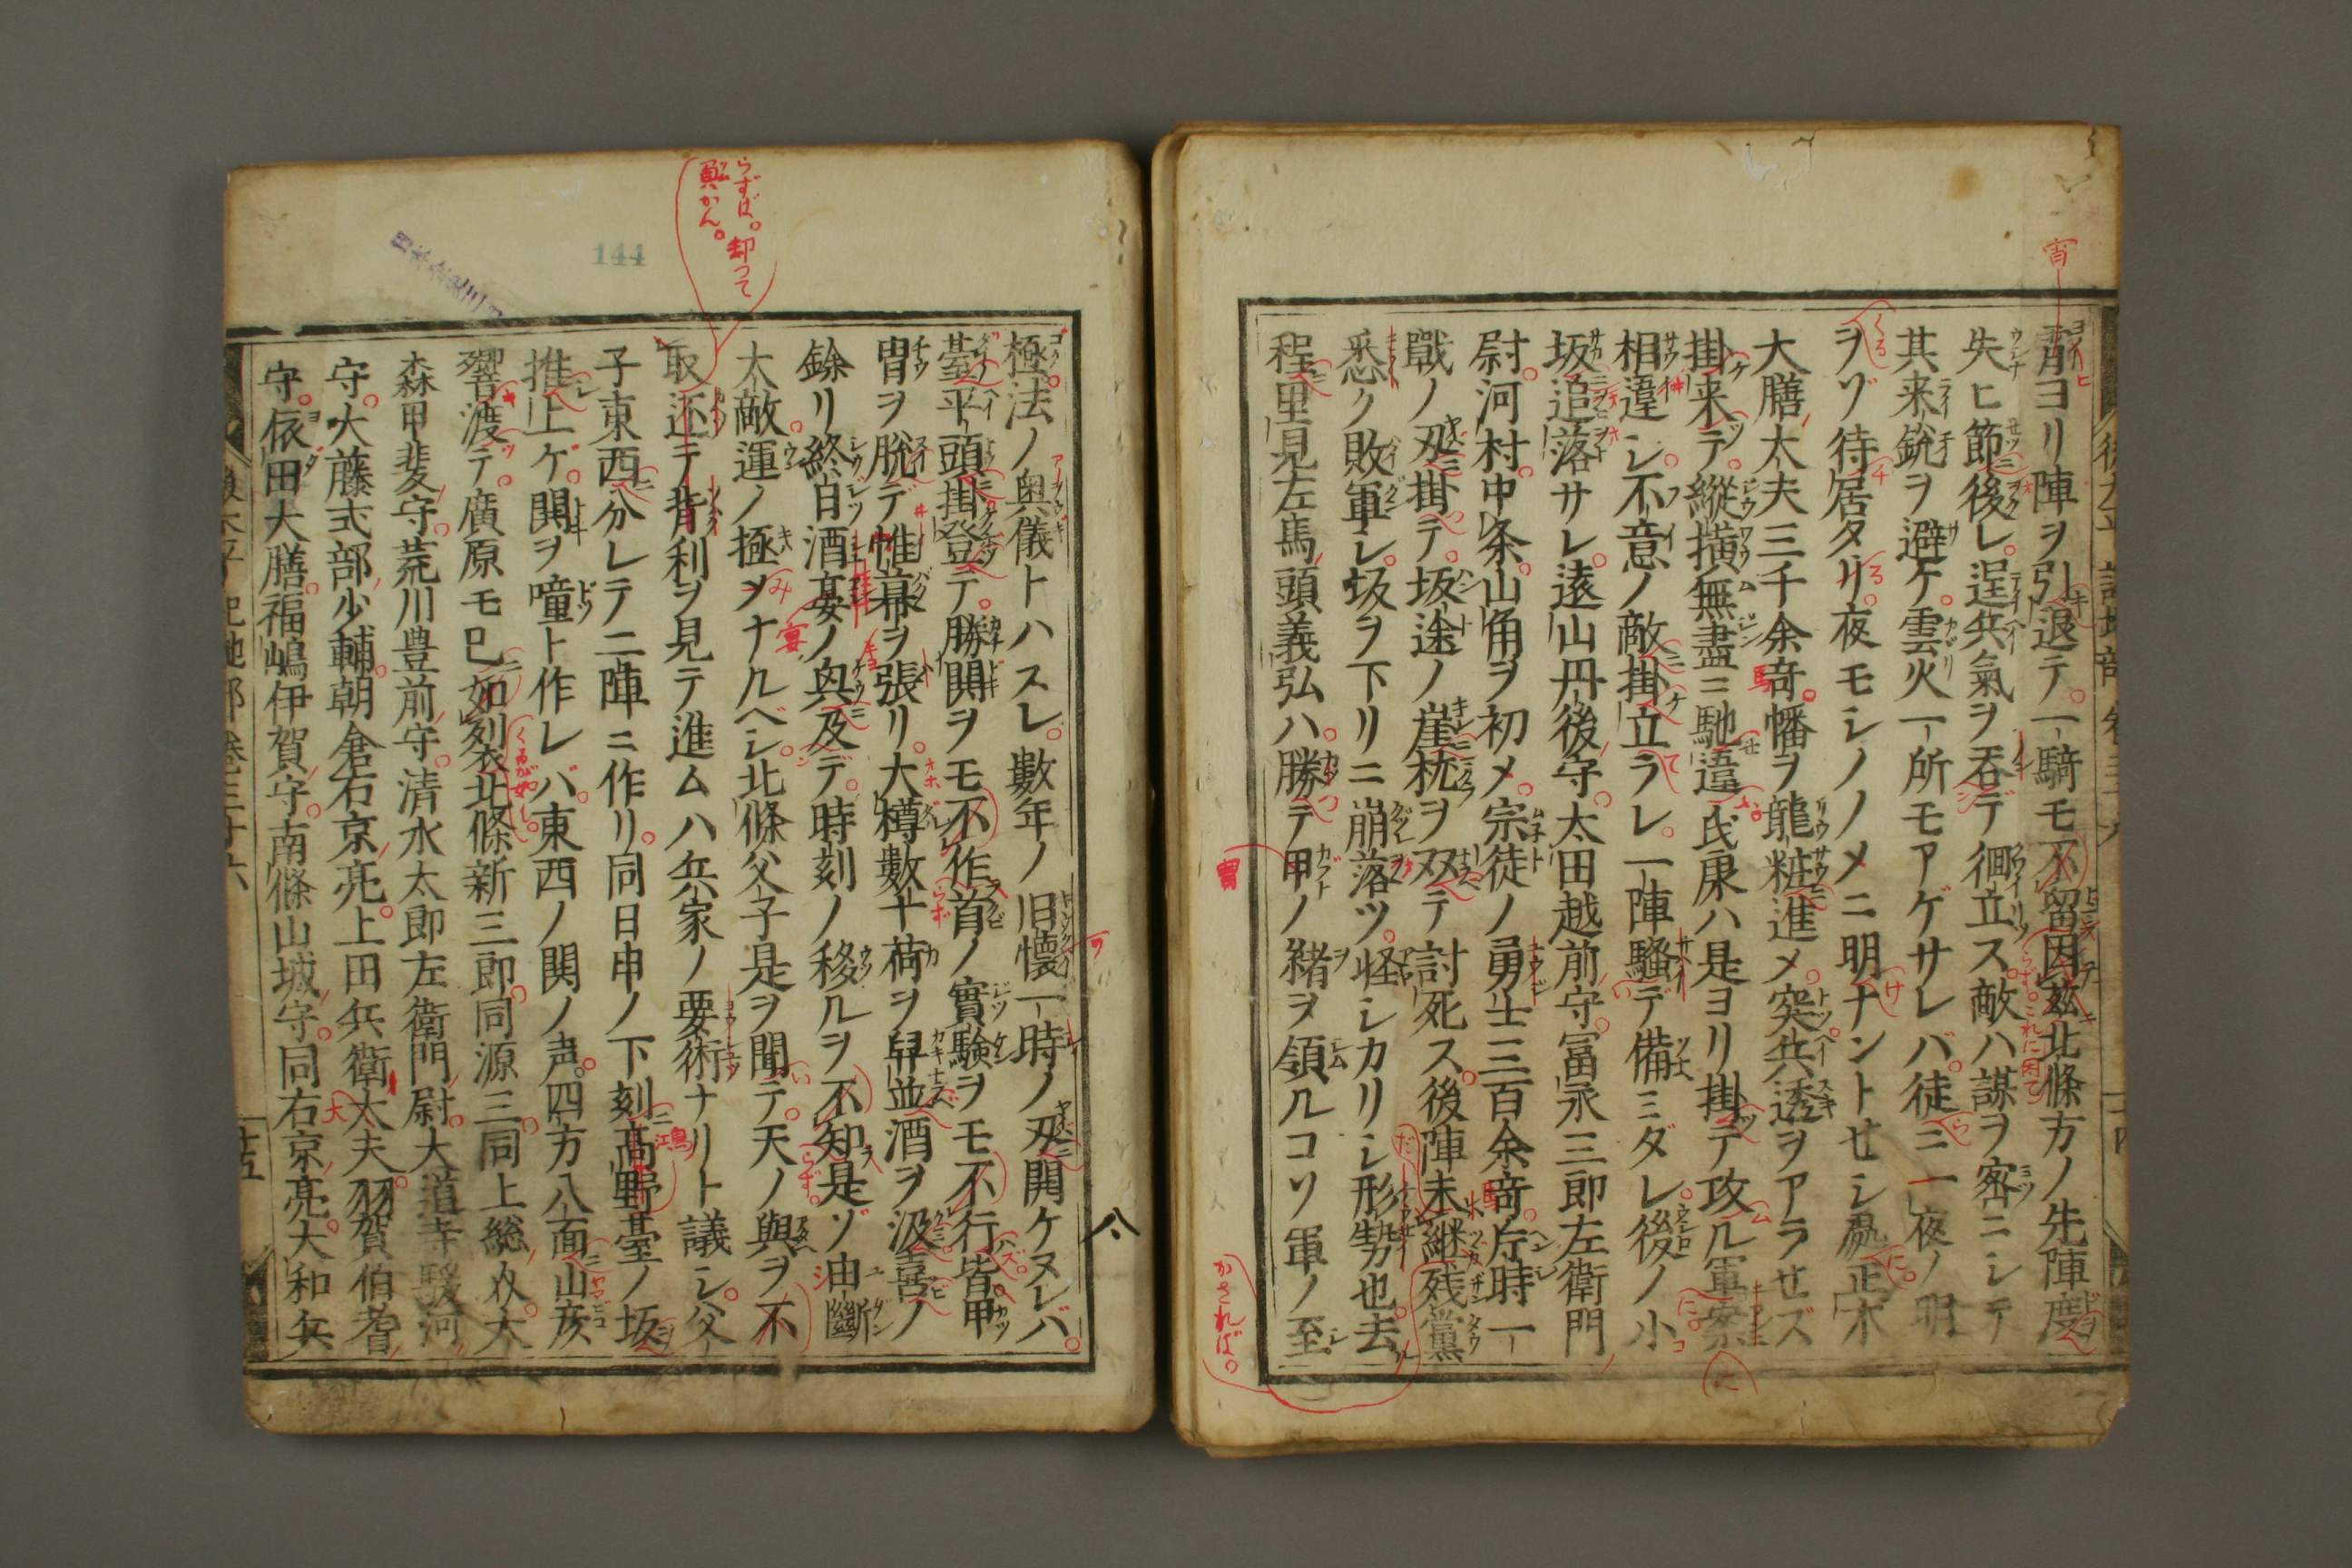 霄ヨリ陣ヲ引退テ。一騎モ不留因茲北條方ノ先陣度
失ヒ節後レ。逞兵氣ヲ呑デ徊立ス。敵ハ謀ヲ密ニシテ
其来銃ヲ避ケ。雲火一所モアゲサレバ。徒ニ一夜ノ明
ヲゾ待居タリ。夜モシノノメニ明ナントセシ処。正木
大膳太夫三千余竒。幡ヲ龍粧進メ。突兵透ヲアラセズ
掛来テ。縱横無盡ニ馳違。氏康ハ是ヨリ掛テ攻ル軍察
相違シ。不意ノ敵掛立ラレ。一陣騒デ備ミダレ。後ノ小
坂追落サレ。遠山丹後守。太田越前守。冨永三郎左衛門
尉。河村。中条。山角ヲ初メ。宗徒ノ勇士三百余竒。片時一
戰ノ刃掛テ。坂途ノ崖枕ヲ双テ討死ス。後陣未継残黨
悉ク敗軍シ。坂ヲ下リニ崩落ツ。怪シカリシ形勢也。去
程里見左馬頭義弘ハ。勝テ甲ノ緒ヲ領ルコソ軍ノ至
極。法ノ奥儀トハスレ。數年ノ旧懷一時ノ刃開ケヌレバ。
臺平頭掛登テ。勝閧ヲモ不作首ノ實験ヲモ不行皆甲
冑ヲ脱デ帷幕ヲ張リ。大樽數十荷ヲ舁並酒ヲ汲喜ノ
餘リ終日酒宴ノ興及デ。時刻ノ移ルヲ不知是ゾ由斷
大敵。運ノ極ヲナルベシ。北條父子是ヲ聞テ。天ノ與ヲ不
取还テ背利ヲ見テ進ムハ兵家ノ要術ナリト議シ。父
子東西分レテ二陣ニ作リ。同日申ノ下刻髙野臺ノ坂
推上ゲ。閧ヲ噇ト作レバ。東西ノ関ノ声。四方八面山彦
響渡デ。廣原モ已如列衣北條新三郎。同源三。同上総介。大
森甲斐守。荒川豊前守。清水太郎左衛門尉。大道寺駿河
守。大藤式部少輔。朝倉右京亮。上田兵衛太夫。羽賀伯耆
守。依田大膳。福嶋伊賀守。南條山城守。同右京亮。大和兵
宵
冑
かされば。
らずば。却つて
負かん。
144